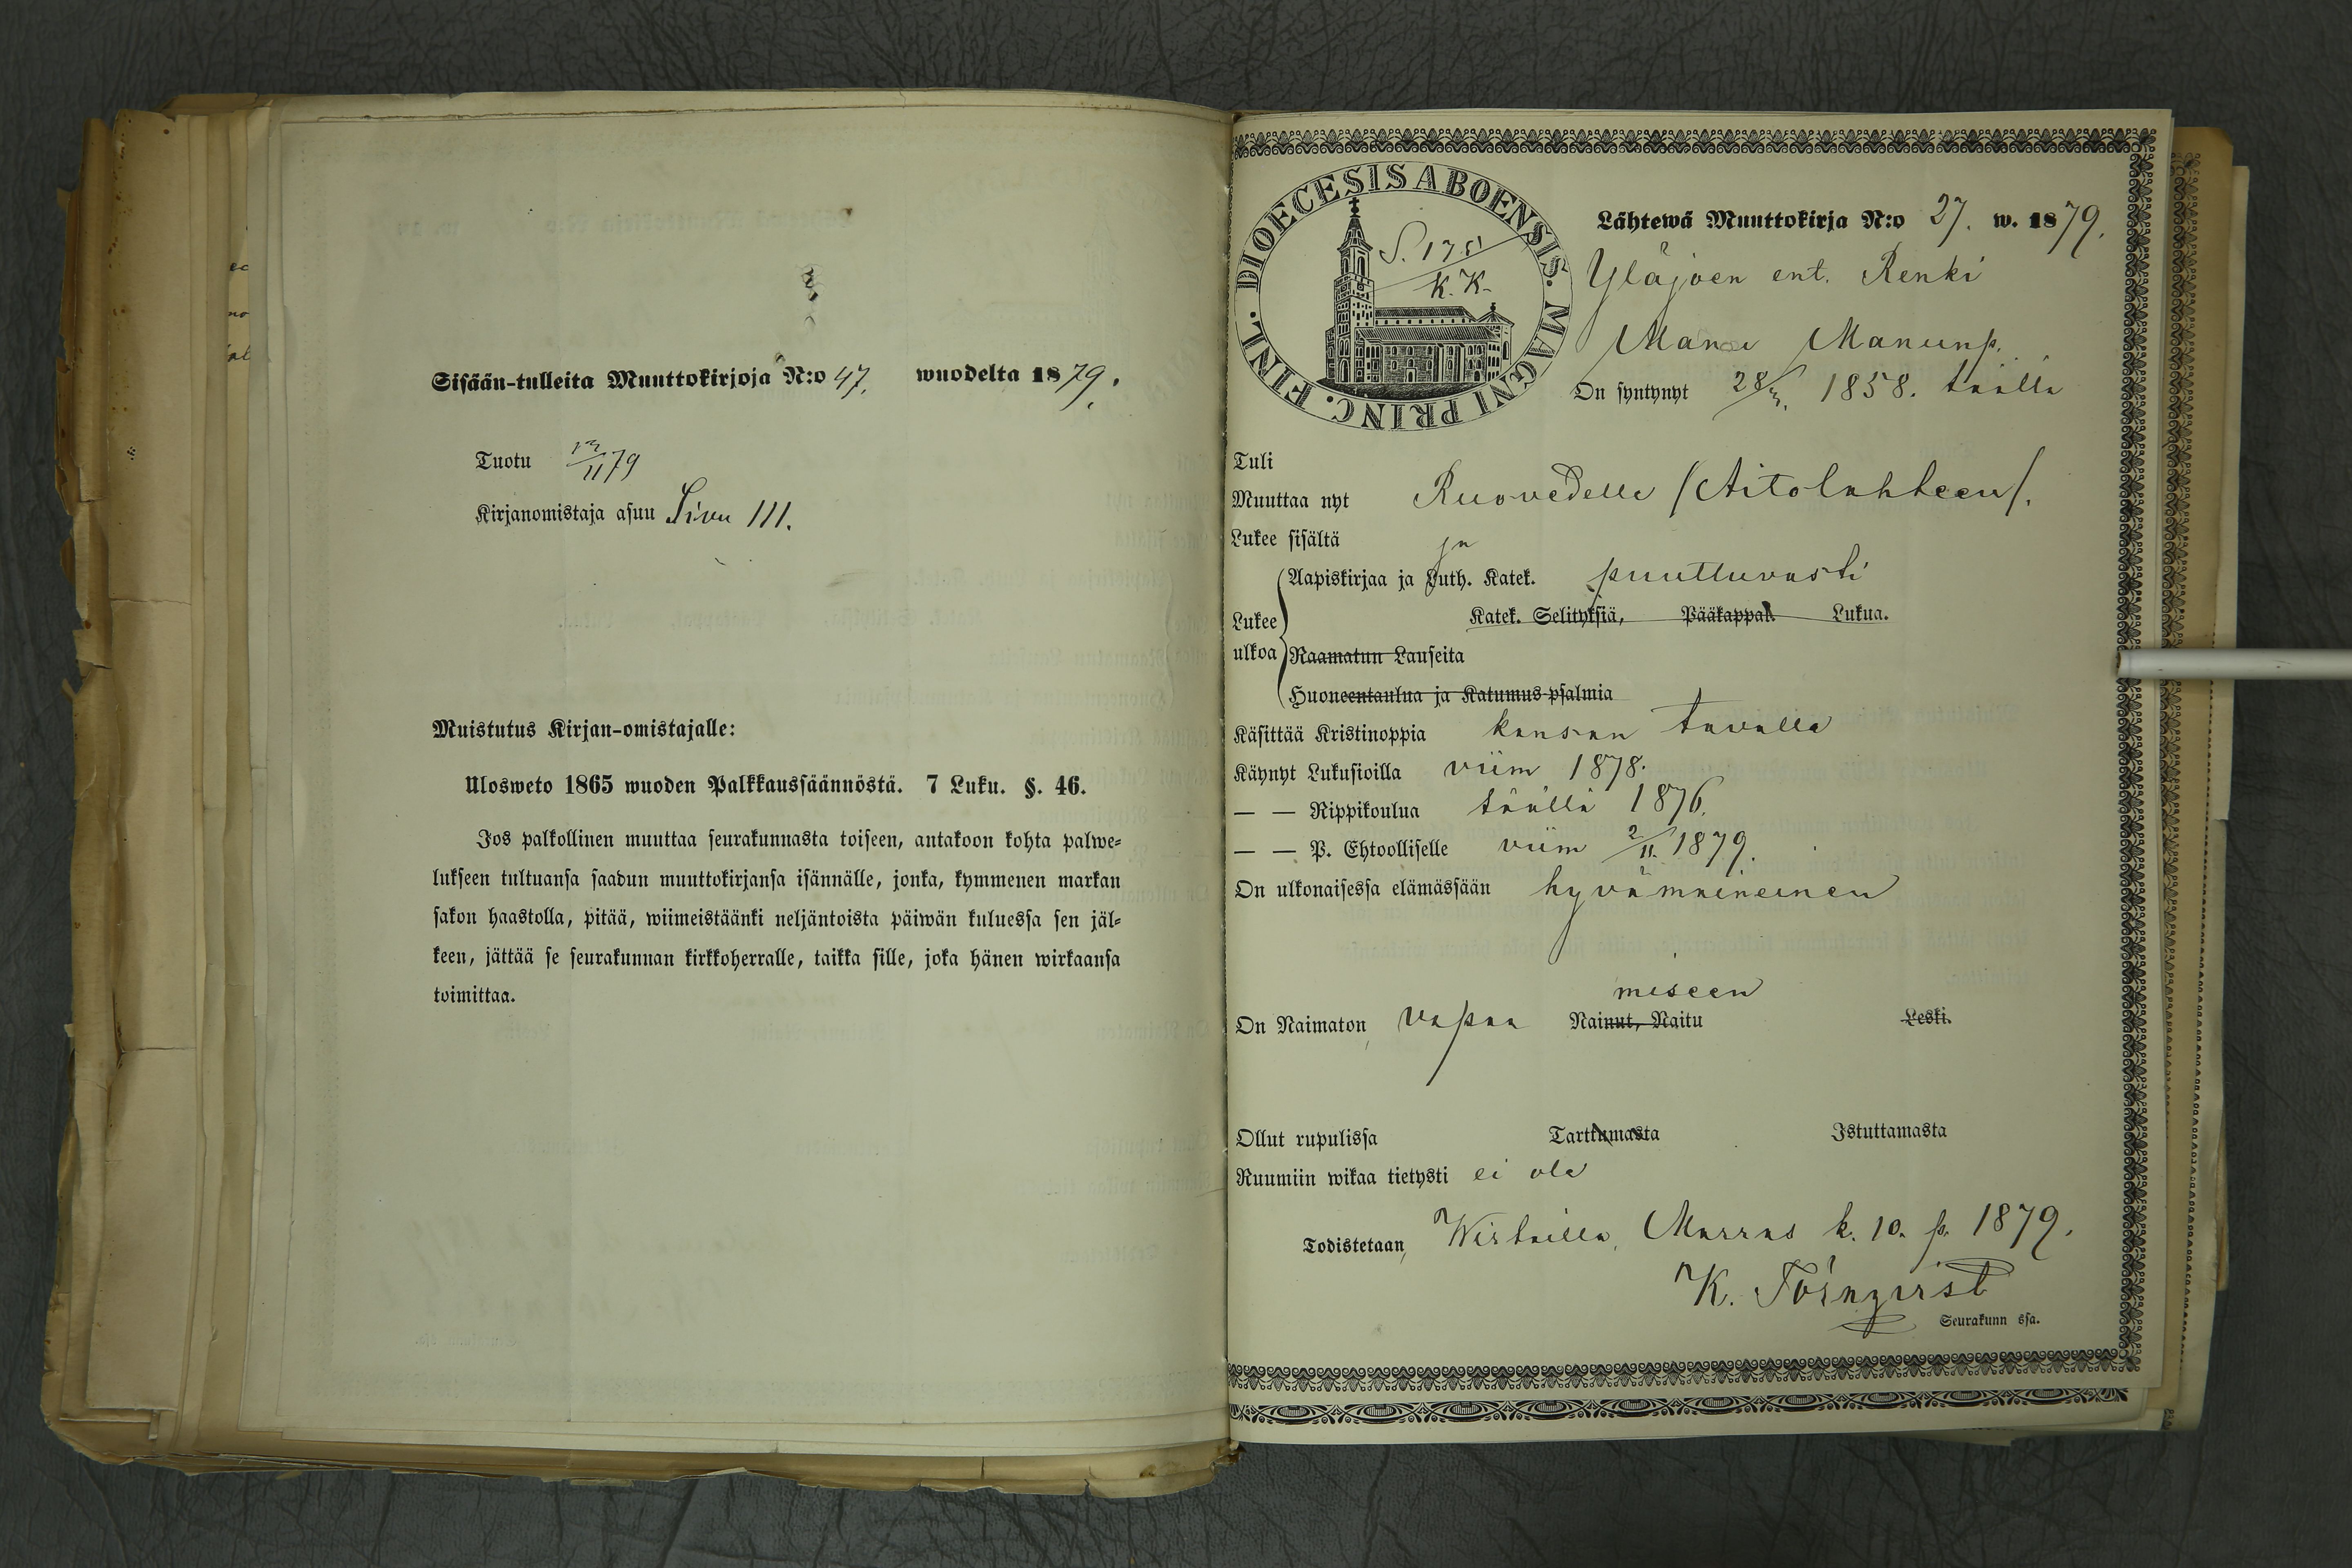 Sisään-tulleita Muuttokirjoja N:o 47. wuodelta 1879.
Tuotu 12/11 79
Kirjanomistaja asuu Sivu 111.
Muistutus Kirjan-omistajalle:
Ulosweto 1865 wuoden Palkkaussäännöstä. 7 Luku. §. 46.
Jos palkollinen muuttaa seurakunnasta toiseen, antakoon kohta palwe=
lukseen tultuansa saadun muuttokirjansa isännälle, jonka, kymmenen markan
sakon haastolla, pitää, wiimeistäänki neljäntoista päiwän kuluessa sen jäl=
keen, jättää se seurakunnan kirkkoherralle, taikka sille, joka hänen wirkaansa
toimittaa.
DIOECESIS ABOENSIS. MAGNI PRINC. FINL.
S. 175
K. K.
Lähtewä Muuttokirja N:o 27. w. 1879.
Yläjoen ent. Renki
Manu Manunp.
On syntynyt 28/ 1858. täällä
Tuli
Muuttaa nyt Ruovedelle /Aitolahteen/.
Lukee sisältä ja
Aapiskirjaa ja Luth. Katek. puuttuvasti
Katek. Selityksiä, Pääkappal. Lukua.
Lukee
ulkoa
Raamatun Lauseita
Huoneentaulua ja Katumus-psalmia
Käsittää Kristinoppia kansan tavalla
Käynyt Lukusioilla viim 1878.
— — Rippikoulua täällä 1876.
— — P. Ehtoolliselle viim 2/11. 1879.
On ulkonaisessa elämässään hyvämaineinen
miseen
On Naimaton vapaa Nainut, Naitu Leski.
Ollut rupulissa Tarttumasta Istuttamasta
Ruumiin wikaa tietysti ei ole
Todistetaan, Wirtailla, Marras k. 10. p. 1879.
K. Törnqvist
Seurakunn ssa.